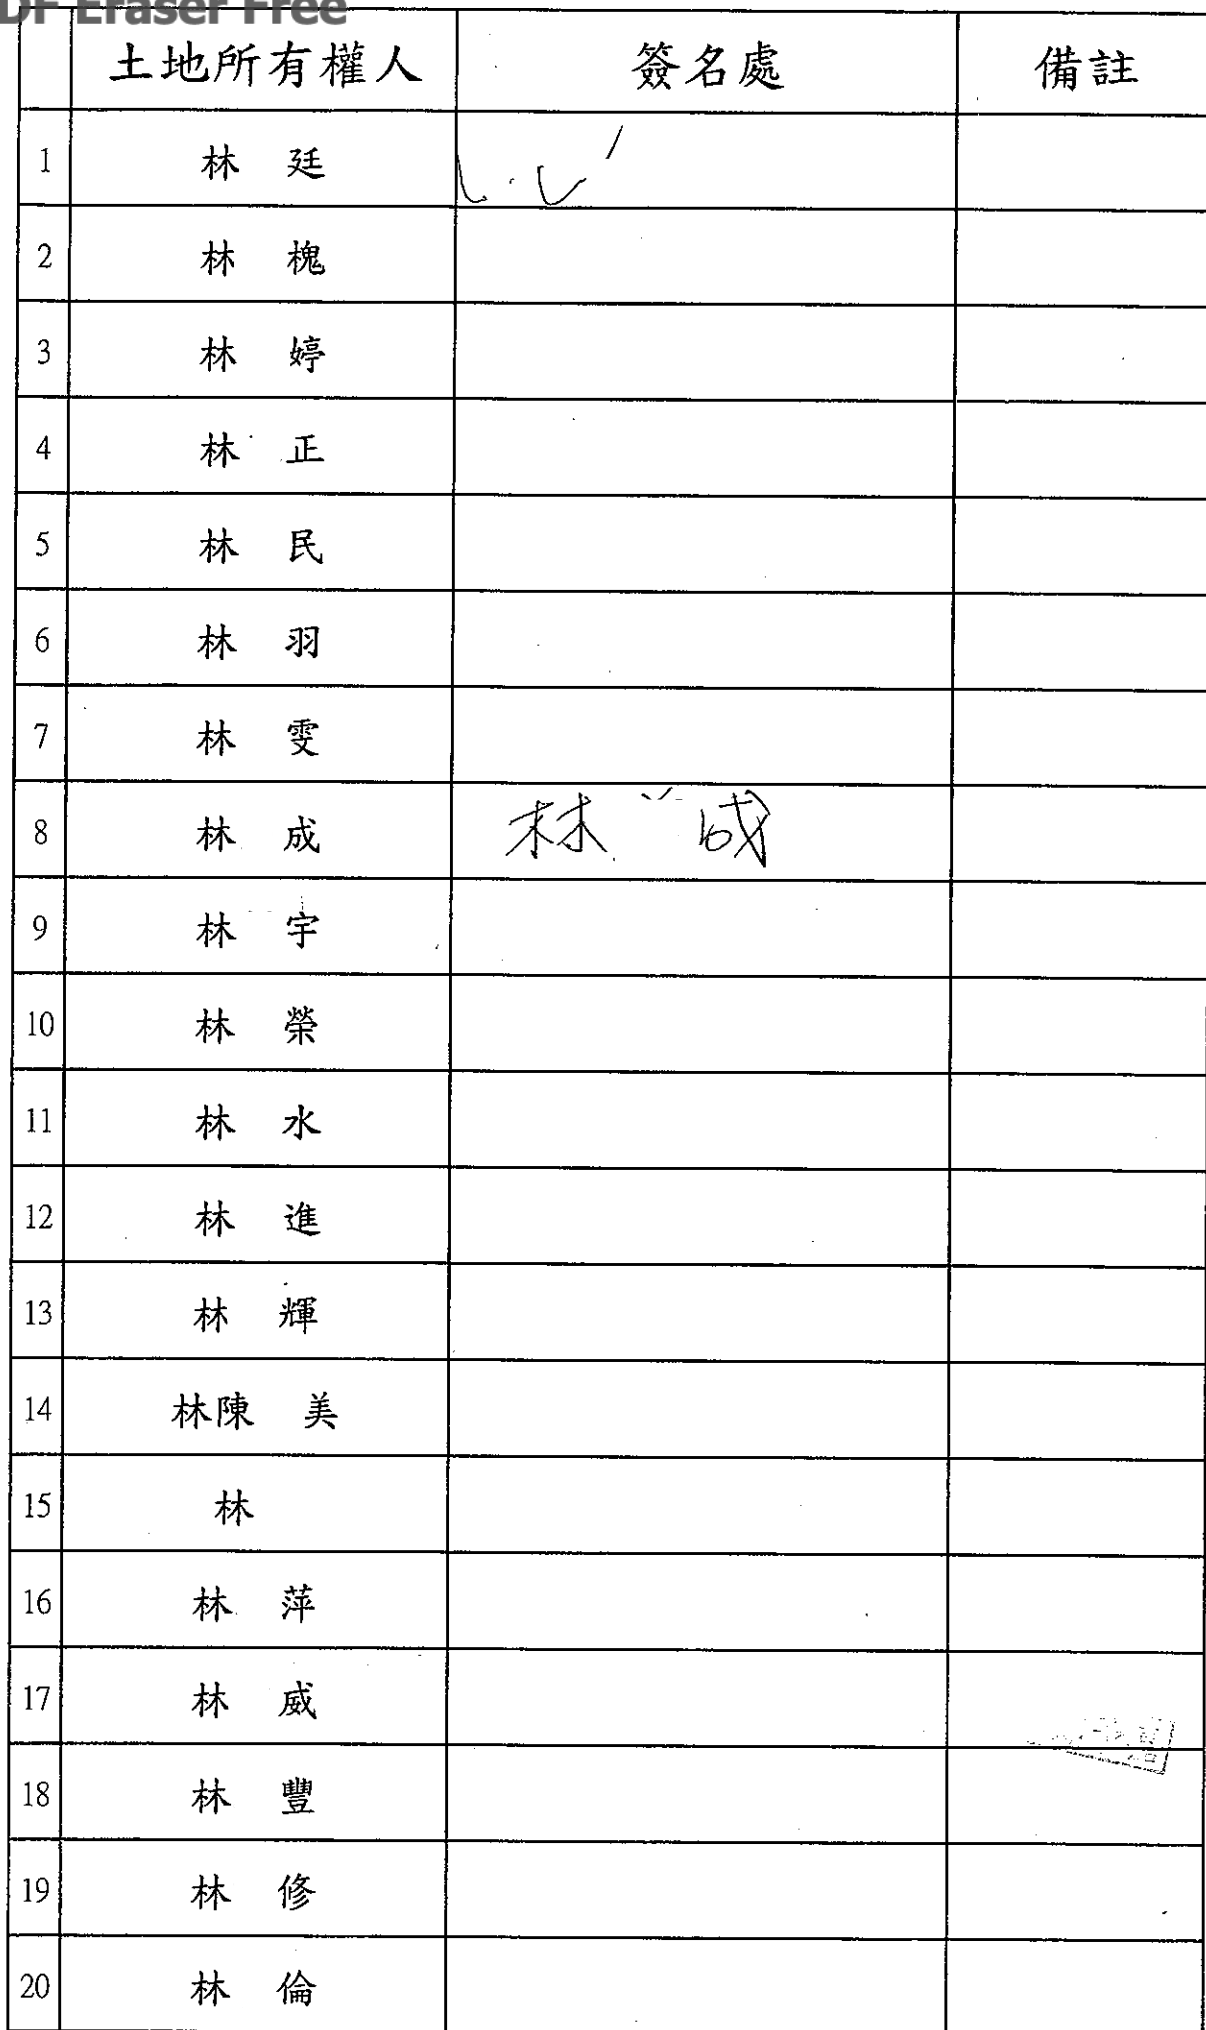 DF Eraser Free
土地所有權人 簽名處 備註
1 林 廷
2 林 槐
3 林 婷
4 林 正
5 林 民
6 林 羽
7 林 雯
8 林 成 林 成
9 林 宇
10 林 榮
11 林 水
12 林 進
13 林 輝
14 林陳 美
15 林
16 林 萍
17 林 威
18 林 豐
19 林 修
20 林 倫